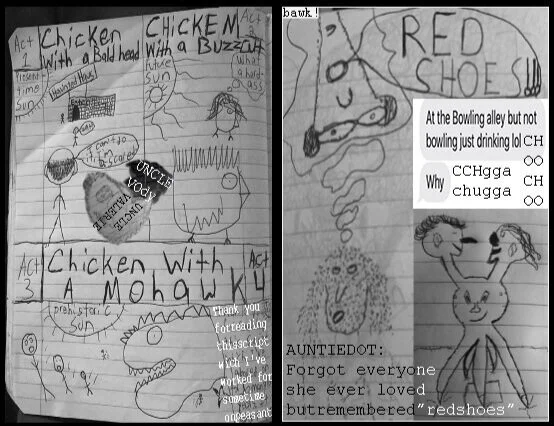 Act
1
Chicken
With a Bald head
CHICKEM
With a BuzzCut
Act
2
Present
time
sun
Haunted House
future
sun
What
a hard-
ass
I can't do
it, I'm
scared
UNCLE
VODY
UNCLE
VALERIE
Act
3
Chicken With
A Mohawk
Act
4
prehistoric
sun
Thank you
forreading
thisscript
wich I've
worked for
sometime
onpeasant
bawk!
RED
SHOES!!!
At the Bowling alley but not
bowling just drinking lol
CH
OO
CH
OO
Why
CCHgga
chugga
AUNTIEDOT:
Forgot everyone
she ever loved
butremembered"redshoes"